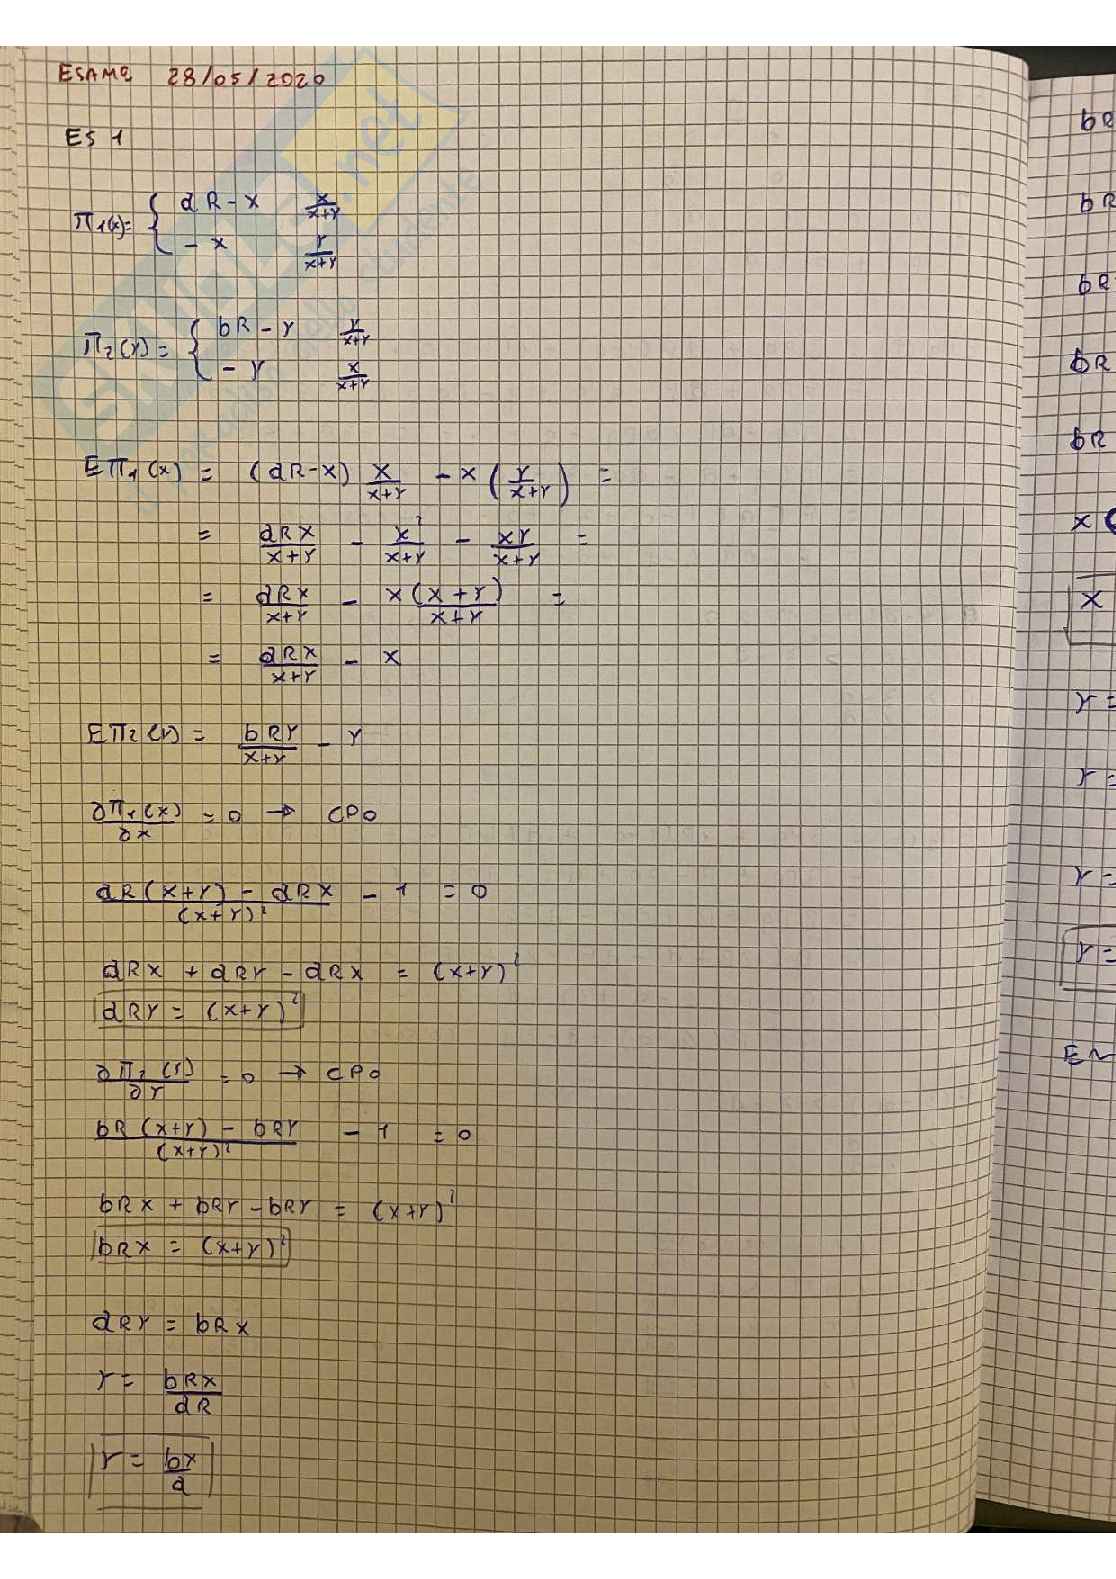 ESAME 28/05/2020
ES 1
π₁(x)= { aR-x   x/(x+y)
-x   y/(x+y)
π₂(y)= { bR-y   y/(x+y)
-y   x/(x+y)
Eπ₁(x) = (aR-x) x/(x+y) - x (y/(x+y)) =
= aRx/(x+y) - x²/(x+y) - xy/(x+y) =
= aRx/(x+y) - x(x+y)/(x+y) =
= aRx/(x+y) - x
Eπ₂(y) = bRy/(x+y) - y
∂π₁(x)/∂x = 0 → CPO
(aR(x+y) - aRx)/(x+y)² - 1 = 0
aRx + aRy - aRx = (x+y)²
aRy = (x+y)²
∂π₂(y)/∂y = 0 → CPO
(bR(x+y) - bRy)/(x+y)² - 1 = 0
bRx + bRy - bRy = (x+y)²
bRx = (x+y)²
aRy = bRx
y = bRx/aR
y = bx/a
bR
bR
bR
bR
bR
x
x
y=
y=
y=
y=